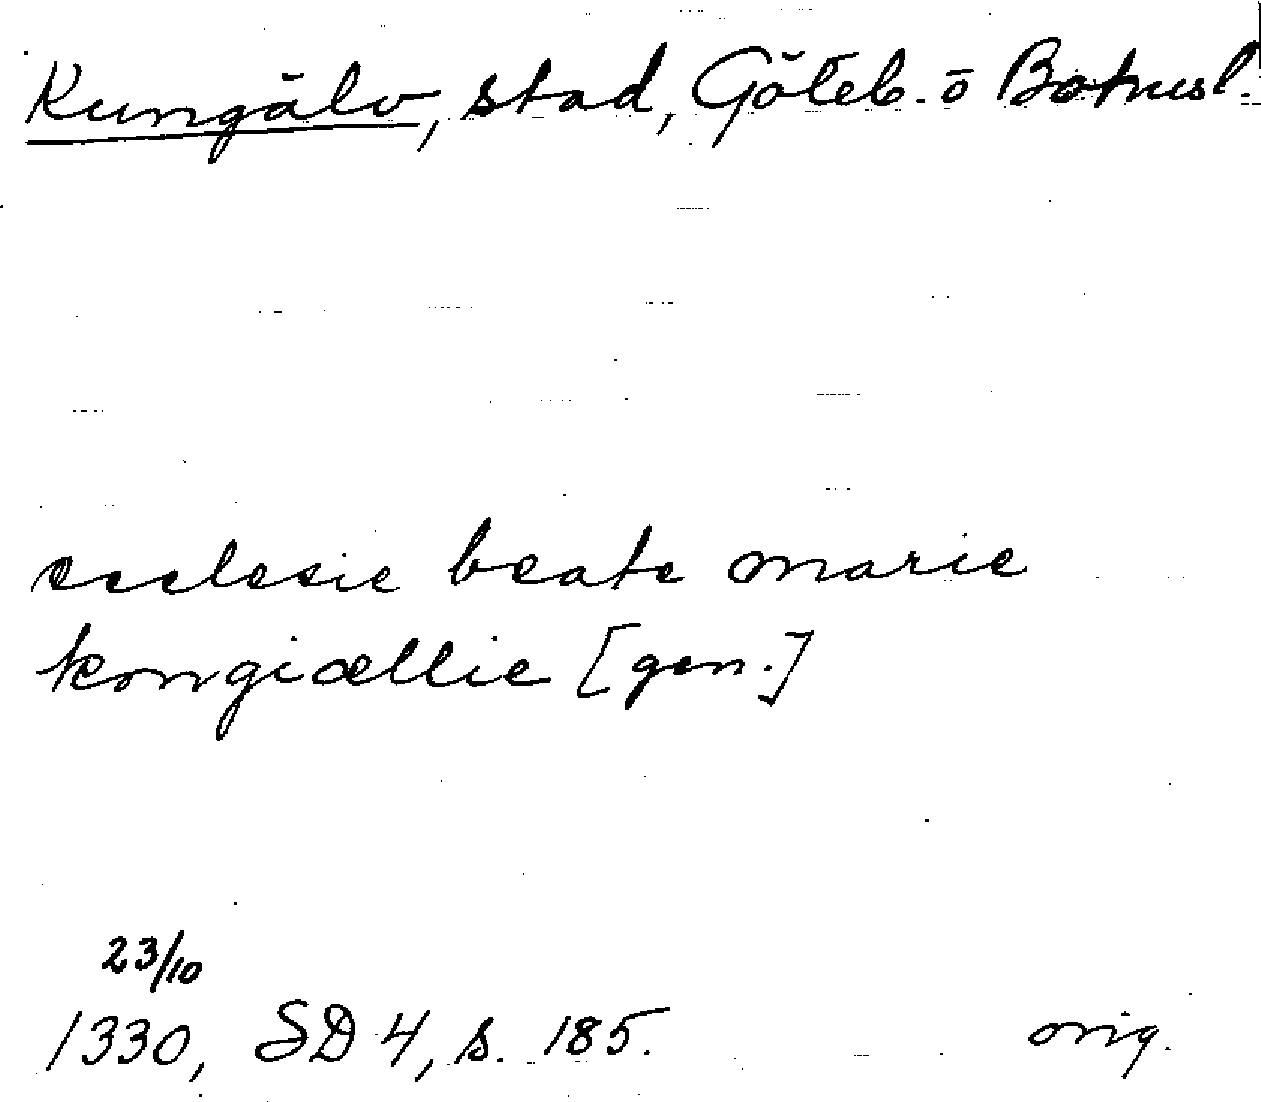 Kungälv, stad, Göteb. o Bohusl.
ecclesie beate marie
kongiællie [gen.]
23/10
1330, SD 4, s. 185. orig.